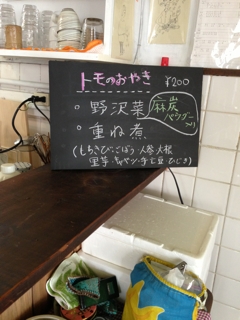 トモのおやき ¥200
・野沢菜
麻炭
パウダー
入り
・重ね煮
(もちきび・ごぼう・人参・大根
里芋・キャベツ・手亡豆・ひじき)